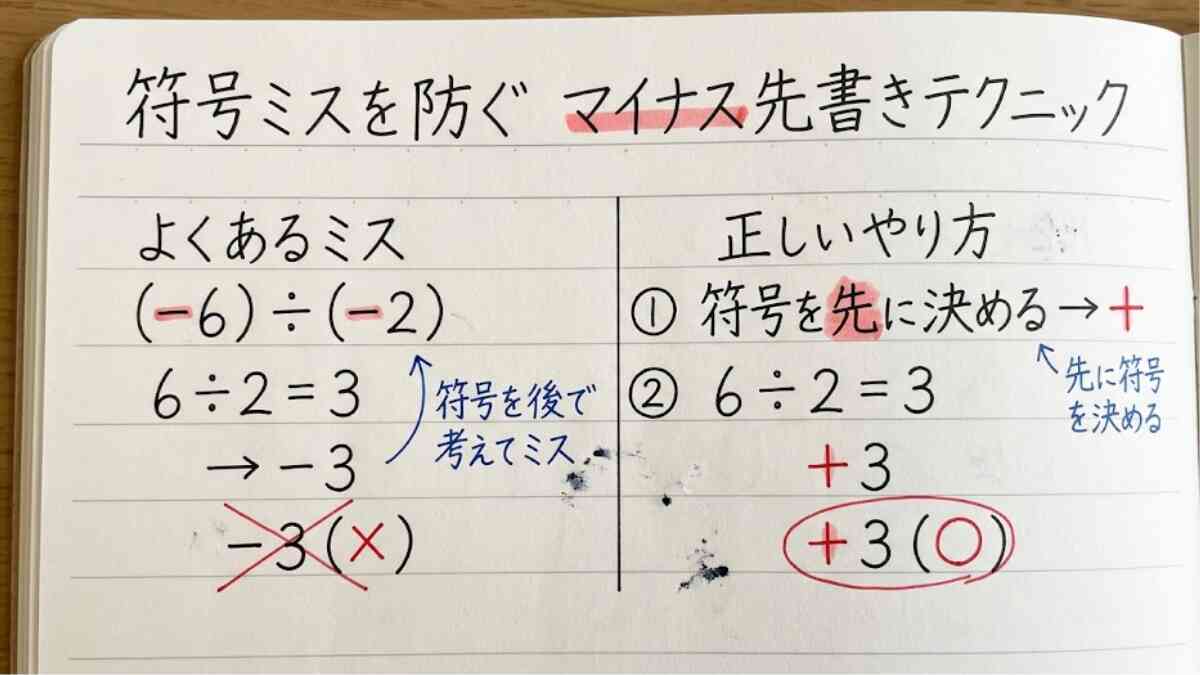 符号ミスを防ぐ マイナス先書きテクニック
よくあるミス
(-6)÷(-2)
6÷2=3
→-3
-3(×)
符号を後で
考えてミス
正しいやり方
① 符号を先に決める→+
② 6÷2=3
+3
+3(○)
先に符号
を決める